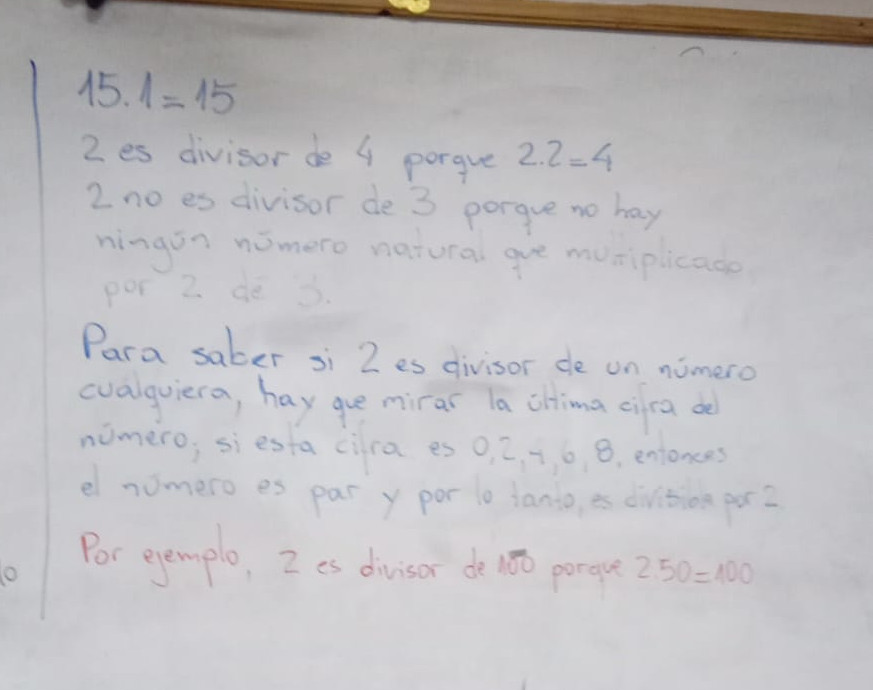 15.1=15
2 es divisor de 4 porque 2.2=4
2 no es divisor de 3 porque no hay
ningún número natural que multiplicado
por 2 dé 3.
Para saber si 2 es divisor de un número
cualquiera, hay que mirar la última cifra del
número; si esta cifra es 0,2,4,6,8, entonces
el número es par y por lo tanto, es divisible por 2
Por ejemplo, 2 es divisor de 100 porque 2.50=100
lo